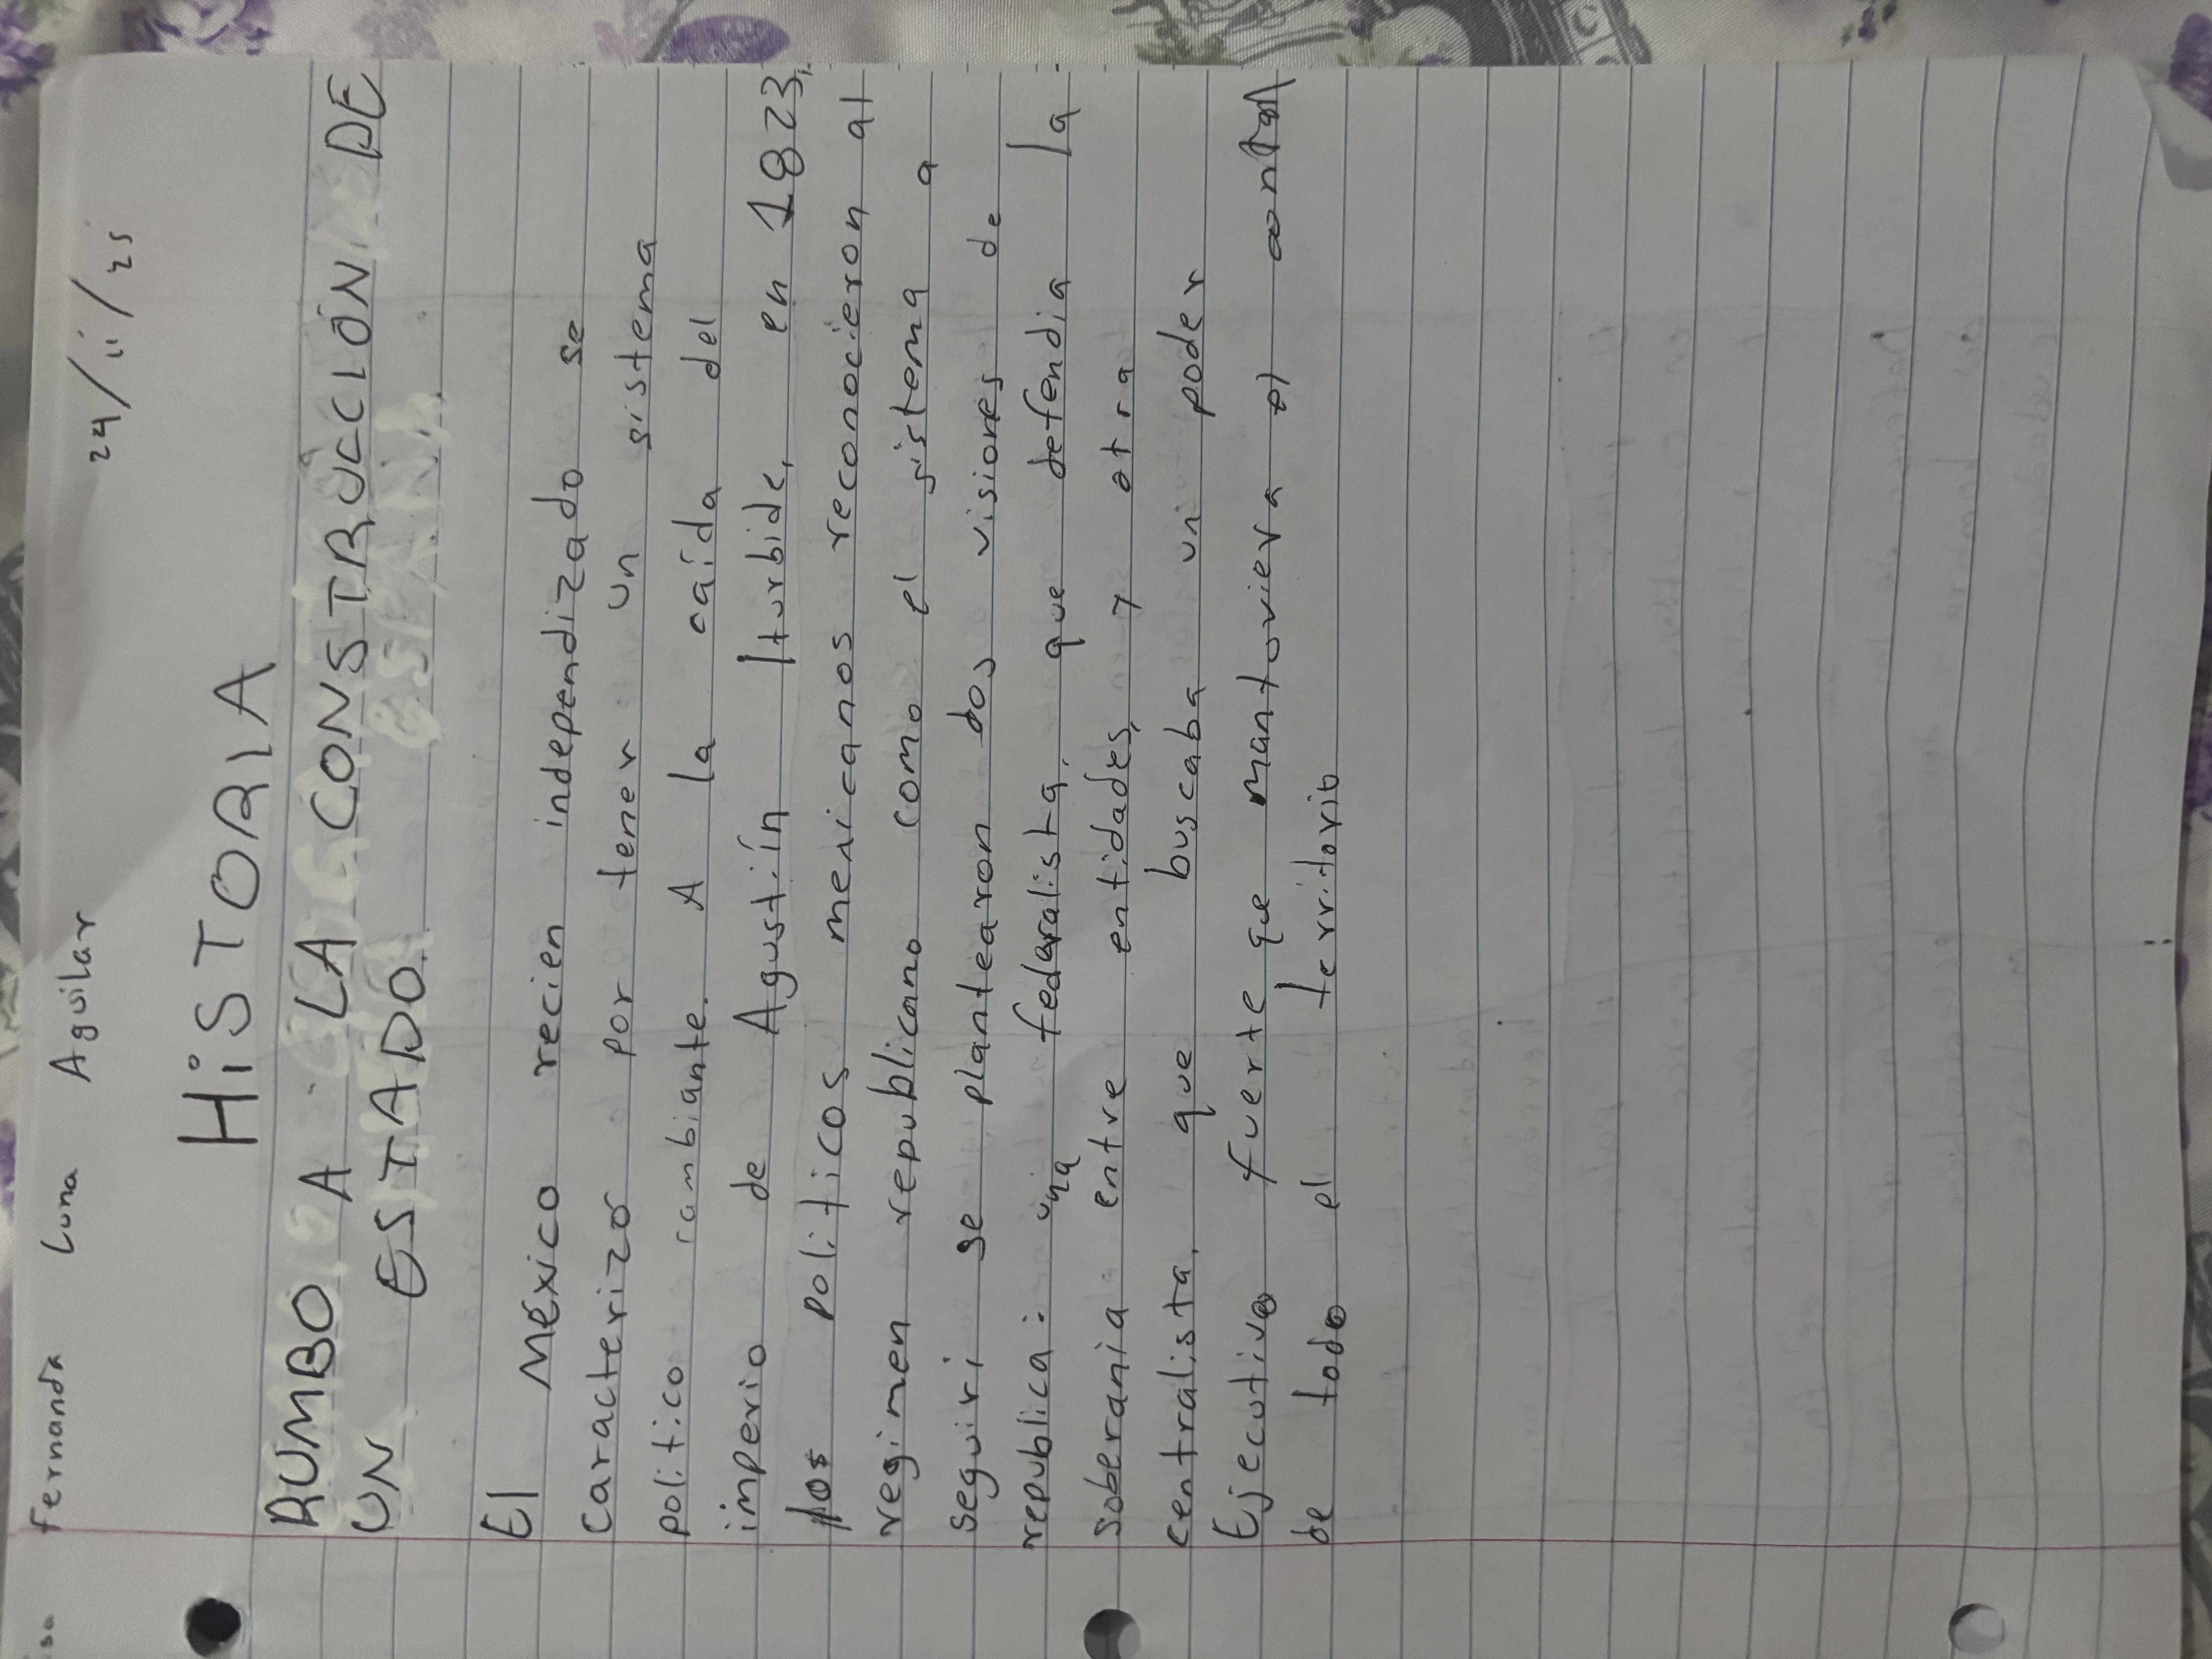 Fernanda Luna Aguilar
24/11/25
HiSTORIA
RUMBO A LA CONSTRUCCIÓN DE
UN ESTADO.
El México recien independizado se
caracterizo por tener un sistema
politico cambiante. A la caída del
imperio de Agustín Iturbide, en 1823,
los politicos mexicanos reconocieron al
regimen republicano como el sistema a
seguiri se plantearon dos visiones de
republica: una federalista, que defendia la
soberania entre entidades, y otra
centralista, que buscaba un poder
Ejecutivo fuerte que mantuviera el
de todo el territorio